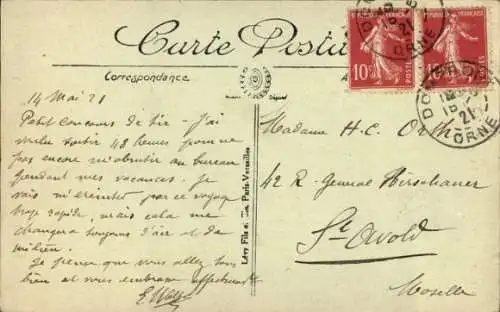 Carte Postale
Correspondance
14 Mai 21
Petit concours de tir - J'ai
voulu 48 heures pour ne
pas encore m'abrutir au bureau
pendant mes vacances. Je
vais m'éreinter par ce voyage
trop rapide, mais cela me
changera toujours d'air et de
milieu.
Je pense que vous allez tous
bien et vous embrasse affectueust
E.
Lévy Fils et Paris-Versailles
10c POSTES
FRANÇAISE
ORNE
21
Madame H. C.
42 R. General Hirschauer
St Avold
Moselle